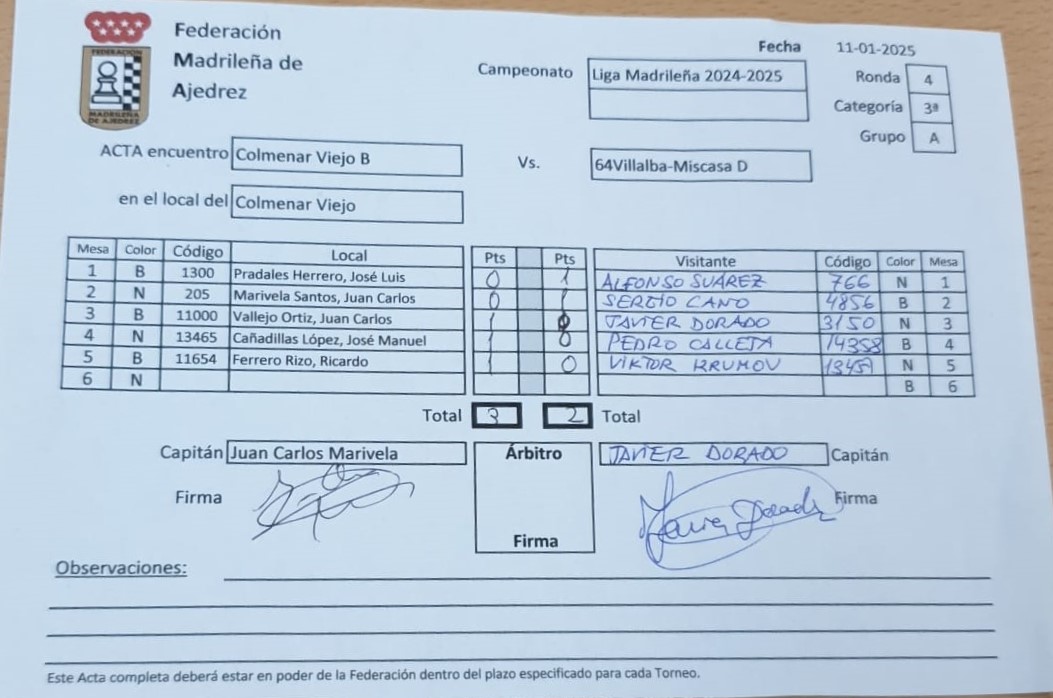 Federación
Madrileña de
Ajedrez
FEDERACION
MADRILEÑA
DE AJEDREZ
Fecha 11-01-2025
Campeonato Liga Madrileña 2024-2025
Ronda 4
Categoría 3ª
Grupo A
ACTA encuentro Colmenar Viejo B Vs. 64Villalba-Miscasa D
en el local del Colmenar Viejo
Mesa Color Código Local Pts Pts Visitante Código Color Mesa
1 B 1300 Pradales Herrero, José Luis 0 1 ALFONSO SUÁREZ 766 N 1
2 N 205 Marivela Santos, Juan Carlos 0 1 SERGIO CANO 4856 B 2
3 B 11000 Vallejo Ortiz, Juan Carlos 1 0 JAVIER DORADO 3150 N 3
4 N 13465 Cañadillas López, José Manuel 1 0 PEDRO CALLEJA 14358 B 4
5 B 11654 Ferrero Rizo, Ricardo 1 0 VIKTOR KRUMOV N 5
6 N B 6
Total 3 2 Total
Capitán Juan Carlos Marivela Árbitro JAVIER DORADO Capitán
Firma Javier Dorado Firma
Firma
Observaciones:
Este Acta completa deberá estar en poder de la Federación dentro del plazo especificado para cada Torneo.